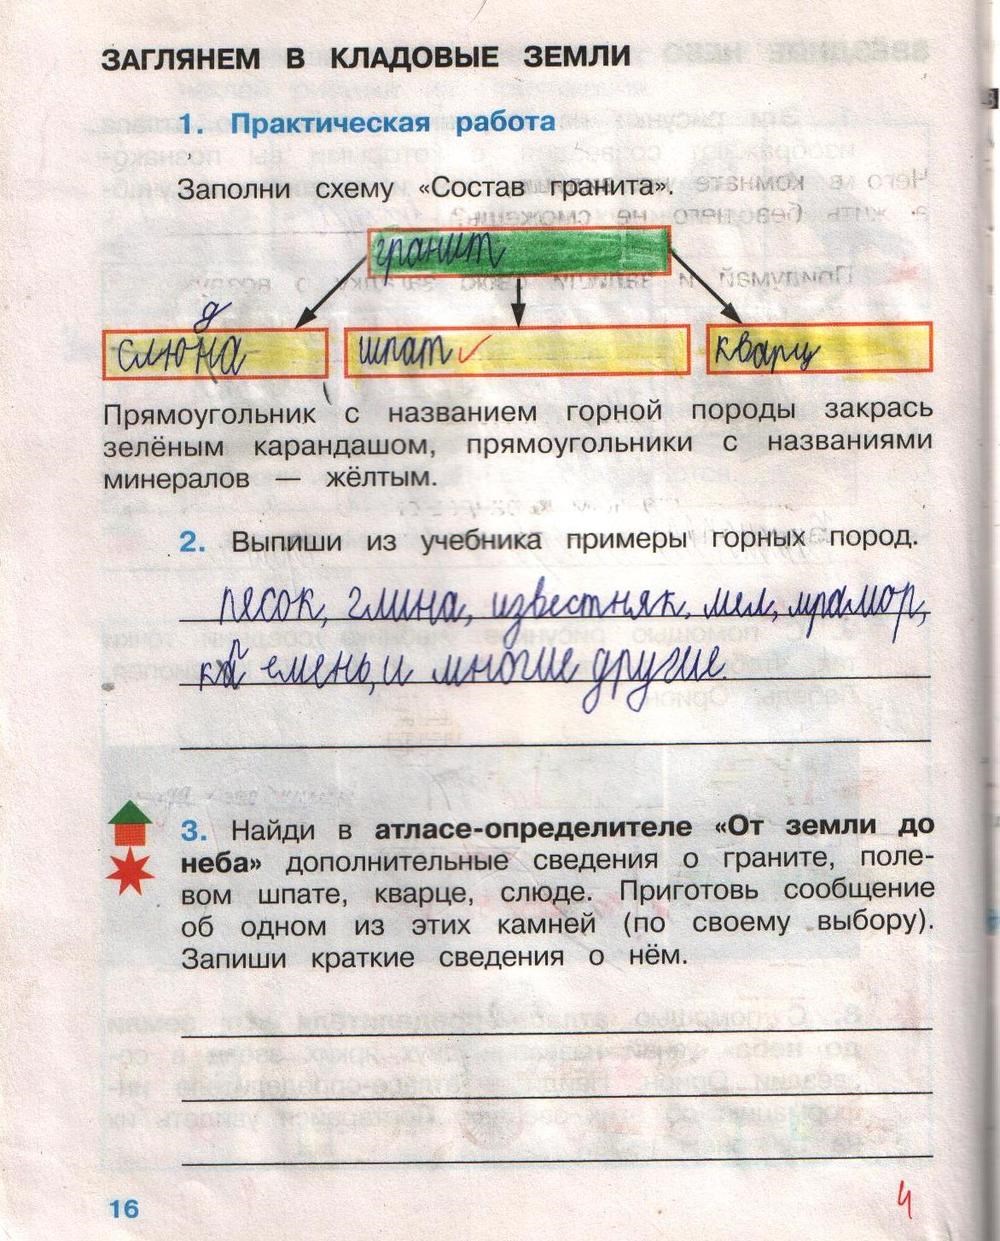 ЗАГЛЯНЕМ В КЛАДОВЫЕ ЗЕМЛИ
1. Практическая работа
Заполни схему «Состав гранита».
гранит
д
слюна шпат кварц
Прямоугольник с названием горной породы закрась
зелёным карандашом, прямоугольники с названиями
минералов — жёлтым.
2. Выпиши из учебника примеры горных пород.
песок, глина, известняк, мел, мрамор,
кремень, и многие другие.
3. Найди в атласе-определителе «От земли до
неба» дополнительные сведения о граните, поле-
вом шпате, кварце, слюде. Приготовь сообщение
об одном из этих камней (по своему выбору).
Запиши краткие сведения о нём.
16
4